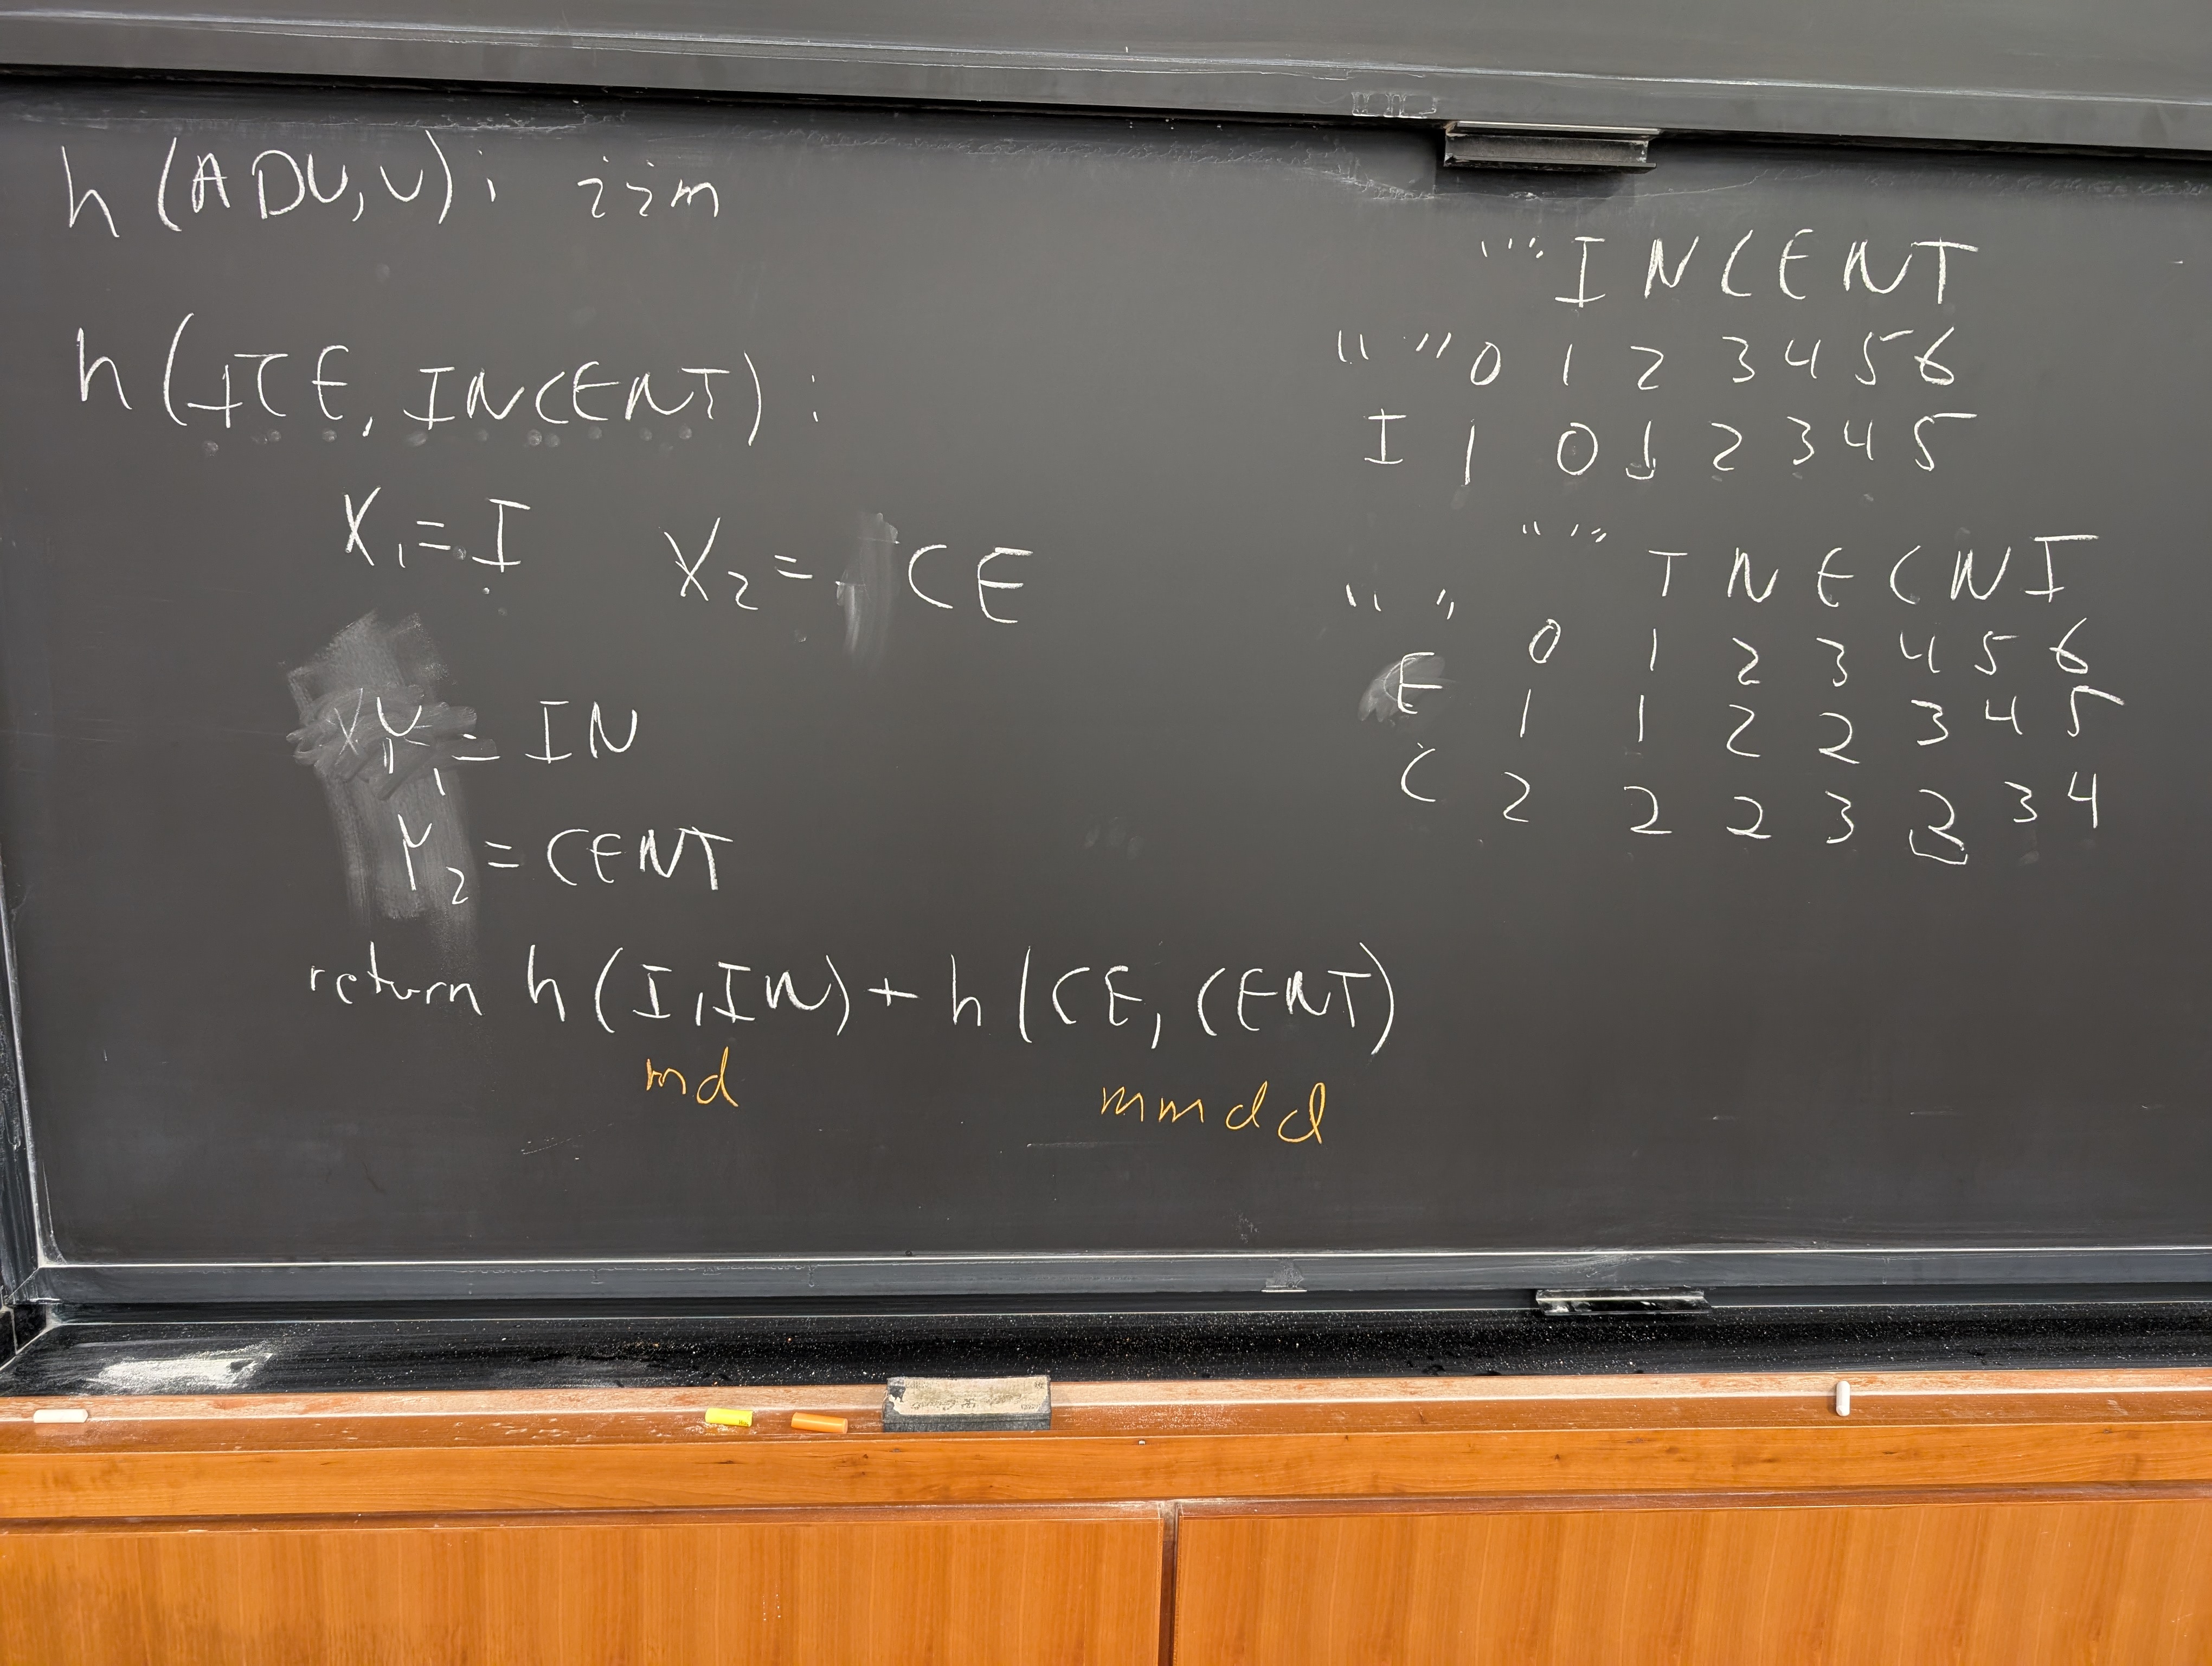 h(ADV,V): iim
h(ICE, INCENT):
X₁=I X₂= CE
Y₁= IN
Y₂= CENT
return h(I,IN)+h(CE,CENT)
md mmdd
"" I N C E N T
"" 0 1 2 3 4 5 6
I 1 0 1 2 3 4 5
"" T N E C N I
"" 0 1 2 3 4 5 6
E 1 1 2 2 3 4 5
C 2 2 2 3 2 3 4